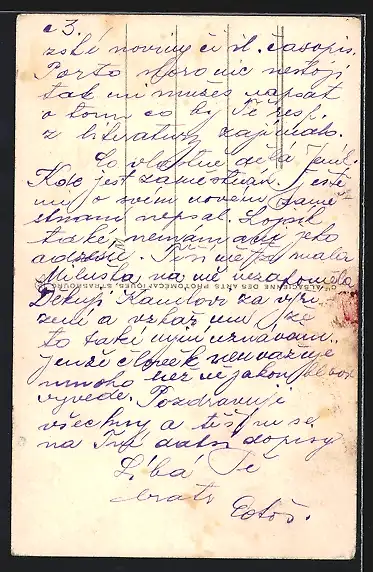 č 3.
zské noviny či il. časopis.
Porto skoro nic nestojí
tak mi můžeš napsat
o tom co by Tě resp.
z literatury zajímalo.
Co vlastně dělá Jenil.
Kde jest zaměstnán. Ještě
mi o svém novém zamě
stnání nepsal.
také nemám ani jeho
adresu. Těší mě že malá
Miluška, na mě nezapoměla
Děkuji Kamilovi za vyří
zení a vzkaž mu že
to také nyní uznávám.
Jenže člověk neuvažuje
mnoho než nějakou
vyvede. Pozdravuji
všechny a těším se
na Tvé další dopisy
Líbá Tě
bratr
ALSACIENNE DES ARTS PHOTOMÉCANIQUES, STRASBOURG